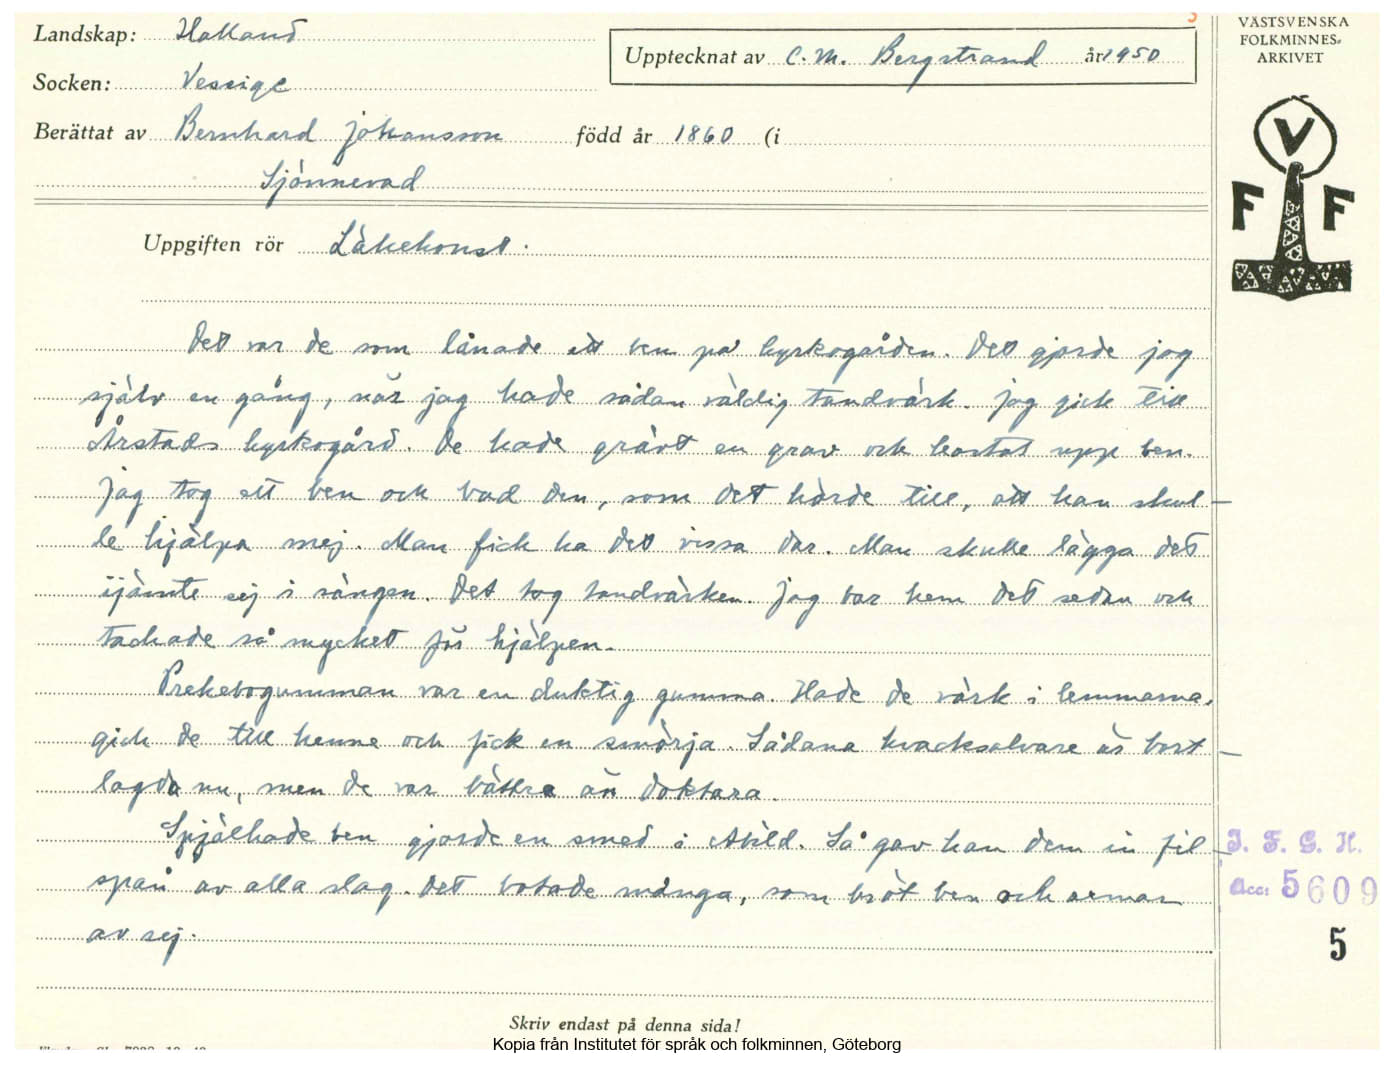 Landskap: Halland
Upptecknat av C. M. Bergstrand år 1950
VÄSTSVENSKA
FOLKMINNES-
ARKIVET
Socken: Vessige
Berättat av Bernhard Johansson född år 1860 (i
Sjönnevad
V
F F
Uppgiften rör Läkekonst.
Det var de som lånade ett ben på kyrkogården. Det gjorde jag
själv en gång, när jag hade sådan väldig tandvärk. Jag gick till
Årstads kyrkogård. De hade grävt en grav och kastat upp ben.
Jag tog ett ben och bad den, som det hörde till, att han skul-
le hjälpa mej. Man fick ha det vissa dar. Man skulle lägga det
ijämte sej i sängen. Det tog tandvärken. Jag bar hem det sedan och
tackade så mycket för hjälpen.
Prekebogumman var en duktig gumma. Hade de värk i lemmarna,
gick de till henne och fick en smörja. Sådana kvacksalvare är bort-
lagda nu, men de var bättre än doktara.
Spjälkade ben gjorde en smed i Abild. Så gav han dem in fil-
spån av alla slag. Det botade många, som bröt ben och armar
av sej.
I. F. G. H.
Acc: 5609
5
Skriv endast på denna sida!
Kopia från Institutet för språk och folkminnen, Göteborg